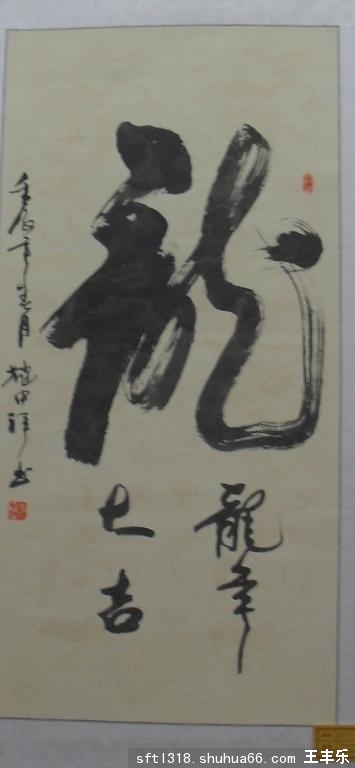 龍
龍年
大吉
壬辰年春月 书
sftl318.shuhua66.com 王丰乐